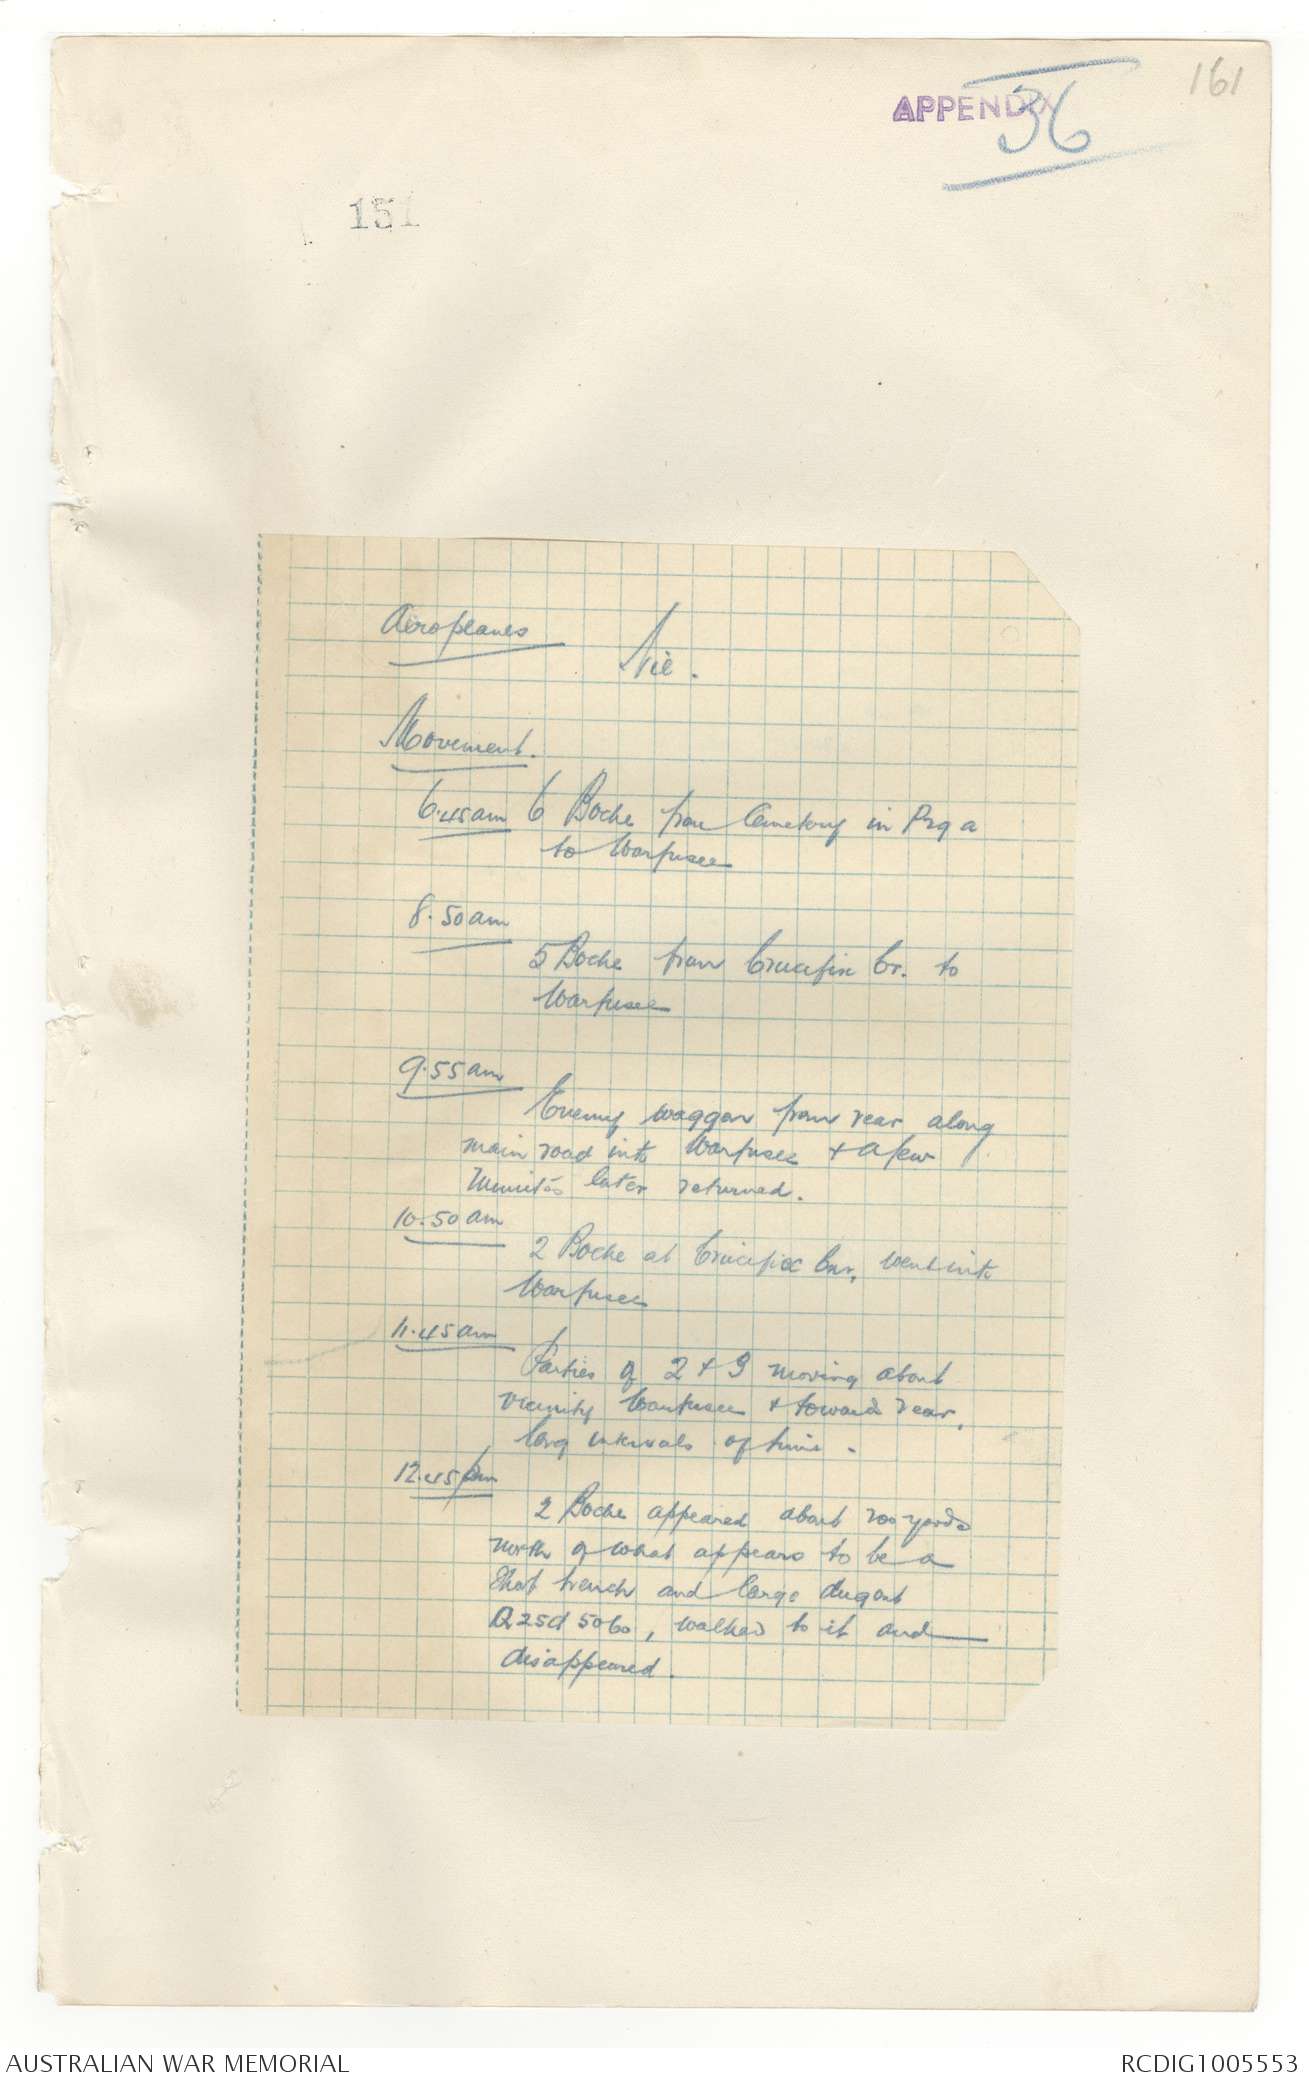 161
APPENDIX 36
151
Aeroplanes
Nil.
Movement.
6.45am 6 Boche from Cemetery in P29a
to Warfusee
8.50am
5 Boche from Crucifix Cr. to
Warfusee
9.55am
Enemy waggon from rear along
main road into Warfusee + a few
minutes later returned.
10.50am
2 Boche at Crucifix Cnr, went into
Warfusee
11.45am
Parties of 2 + 3 moving about
vicinity Warfusee + toward rear,
long intervals of time.
12.45pm
2 Boche appeared about 200 yards
north of what appears to be a
short trench and large dugout
Q25d 5060, walked to it and
disappeared.
AUSTRALIAN WAR MEMORIAL
RCDIG1005553